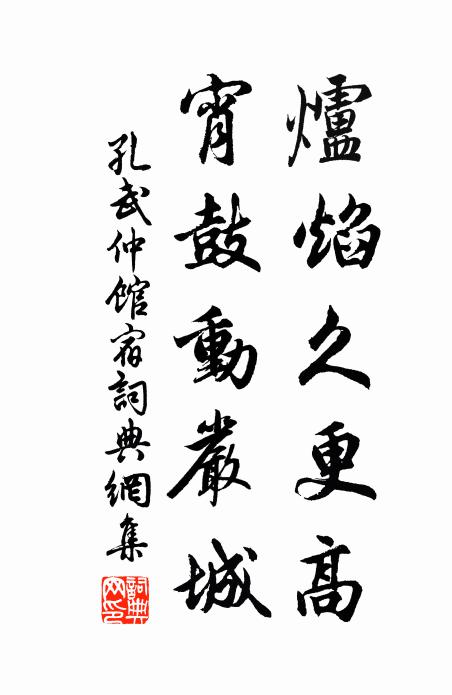 爐焰久更高
宵鼓動嚴城
孔武仲館宿詞典網集
詞典網印